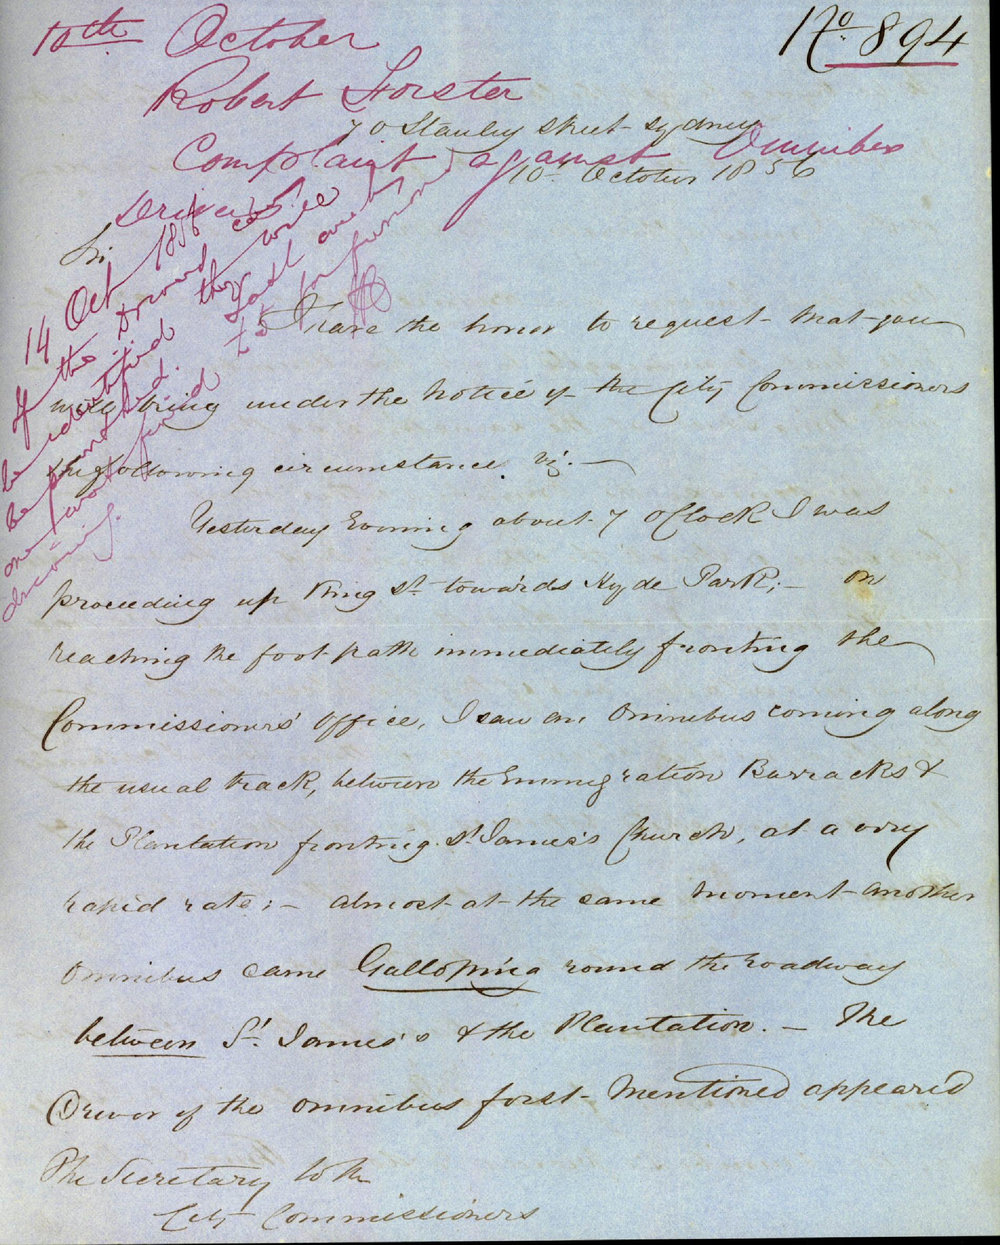 No. 894
10th October
Robert Forster
Complaint against Omnibus
Drivers
70 Stanley Street Sydney
10th October 1856
14 Oct 1856
If the Drivers
be identified they will
be punished.
one
to
furious
driving.
Sir
I have the honor to request that you
will bring under the notice of the City Commissioners
the following circumstance viz. —
Yesterday Evening about 7 O'Clock I was
proceeding up King St. towards Hyde Park; — on
reaching the foot path immediately fronting the
Commissioners' Office, I saw an Omnibus coming along
the usual track, between the Emmigration Barracks &
the Plantation fronting St. James's Church, at a very
rapid rate; — almost at the same moment another
Omnibus came Galloping round the roadway
between St. James's & the Plantation. — The
Driver of the omnibus first mentioned appeared
The Secretary to the
City Commissioners